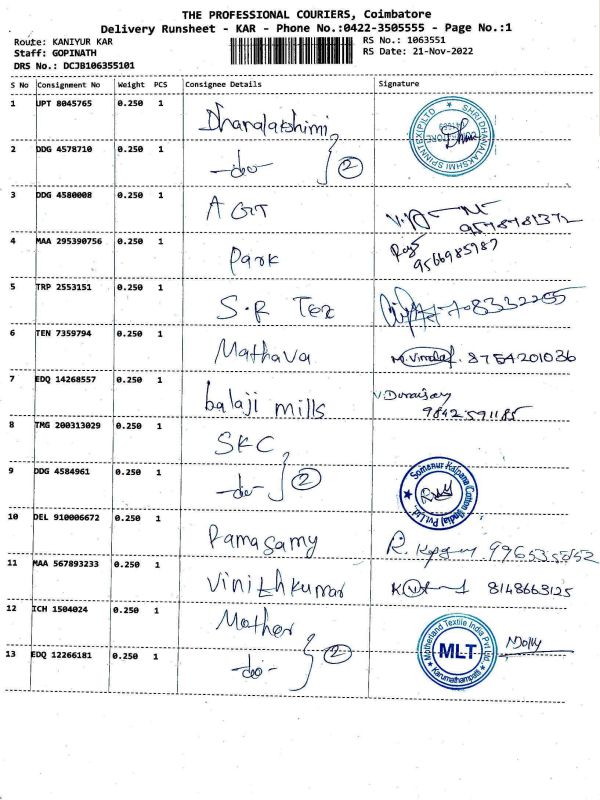 THE PROFESSIONAL COURIERS, Coimbatore
Delivery Runsheet - KAR - Phone No.:0422-3505555 - Page No.:1
Route: KANIYUR KAR RS No.: 1063551
Staff: GOPINATH RS Date: 21-Nov-2022
DRS No.: DCJB106355101
S No Consignment No Weight PCS Consignee Details Signature
1 UPT 8045765 0.250 1 Dhanalakshimi
2 DDG 4578710 0.250 1 -do- 2
3 DDG 4580008 0.250 1 AGT
4 MAA 295390756 0.250 1 Park 9566985987
5 TRP 2553151 0.250 1 S.R Tex
6 TEN 7359794 0.250 1 Mathava M.Vimalat. 8754201036
7 EDQ 14268557 0.250 1 balaji mills V.Duraisay
9842591185
8 TMG 200313029 0.250 1 SKC
9 DDG 4584961 0.250 1 -do- 2 Somanur Kalpana Cotton India Pvt Ltd.
10 DEL 910006672 0.250 1 Ramasamy R.
11 MAA 567893233 0.250 1 Vinithkumar 8148663125
12 ICH 1504024 0.250 1 Mather
13 EDQ 12266181 0.250 1 -do- 2 Motherland Textile India Pvt Ltd. MLT Karumathampatti